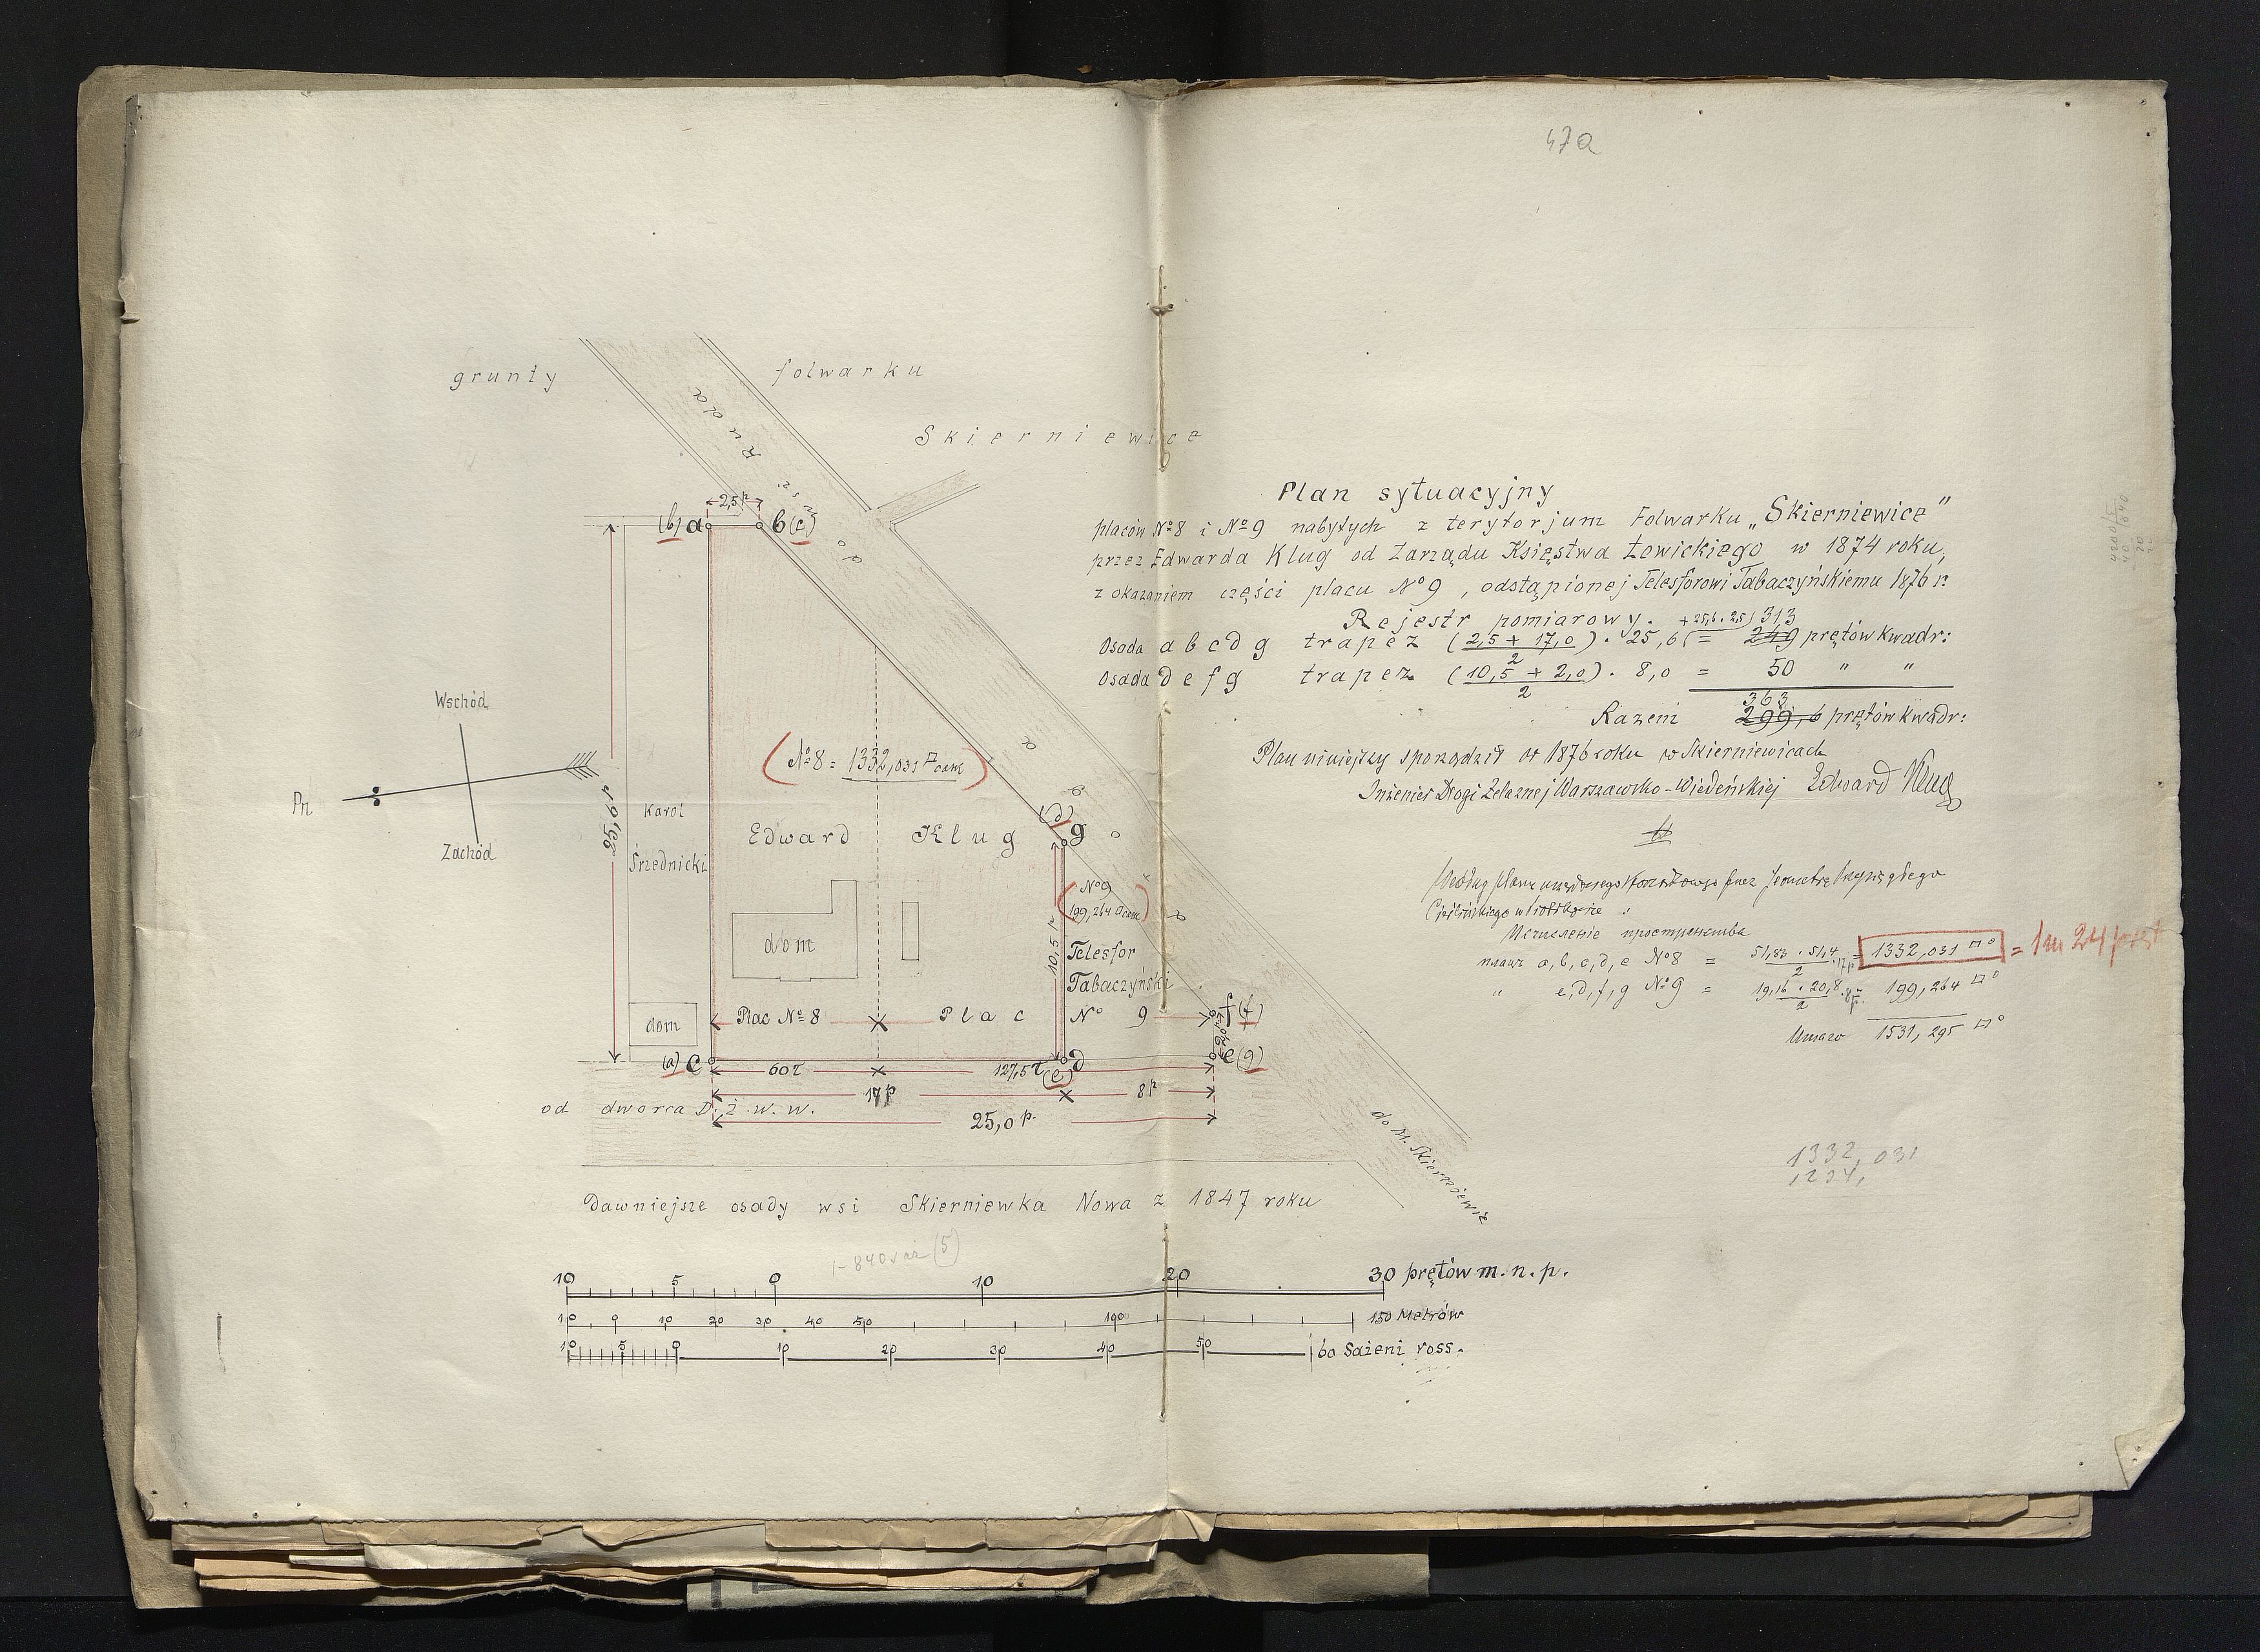 47a
grunty folwarku
Skierniewice
do wsi Ruda
2,5 p
(b) a b (c)
Plan sytuacyjny
placów № 8 i № 9 nabytych z terytorjum Folwarku „Skierniewice"
przez Edwarda Klug od Zarządu Księstwa Łowickiego w 1874 roku,
z okazaniem części placu № 9, odstąpionej Telesforowi Tabaczyńskiemu 1876 r.
Rejestr pomiarowy.
+25,6 . 2,5) 313
Osada a b c d g trapez (2,5 + 17,0) . 25,6 = 249 prętów kwadr:
2
Osada d e f g trapez (10,5 + 2,0) . 8,0 = 50 " "
2
363
Razem 299,6 prętów kwadr:
Plan niniejszy sporządził w 1876 roku w Skierniewicach
Inżenier Drogi Żelaznej Warszawsko-Wiedeńskiej Edward Klug
Wschód
Pn
Zachód
№ 8 = 1332,031
Karol
Średnicki
Edward Klug
(d) g
№ 9
199,264
10,5 p
Telesfor
Tabaczyński
dom
dom
Plac № 8 Plac № 9
f (f)
(a) c (e) d e (g)
60 127,5
17 p 8 p
od dworca D. Ż. W. W.
25,0 p.
do M. Skierniewic
Według planu
Исчисление пространства
a, b, c, d, e № 8 = 51,83 . 51,4 = 1332,031 □° = 1 m 24
2
" e, d, f, g № 9 = 19,16 . 20,8 199,264 □°
2
Итого 1531,295 □°
1332,031
Dawniejsze osady wsi Skierniewka Nowa z 1847 roku
10 5 0 10 20 30 prętów m. n. p.
10 0 10 20 30 40 50 100 150 Metrów
10 5 0 10 20 30 40 50 60 Sażeni ross.